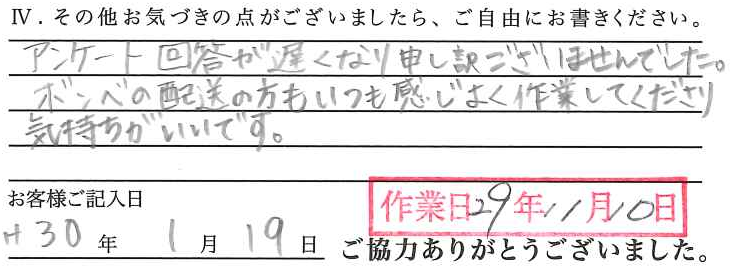 Ⅳ．その他お気づきの点がございましたら、ご自由にお書きください。
アンケート回答が遅くなり申し訳ございませんでした。
ボンベの配送の方もいつも感じよく作業してくださり
気持ちがいいです。
お客様ご記入日
作業日29年11月10日
H30年1月19日
ご協力ありがとうございました。